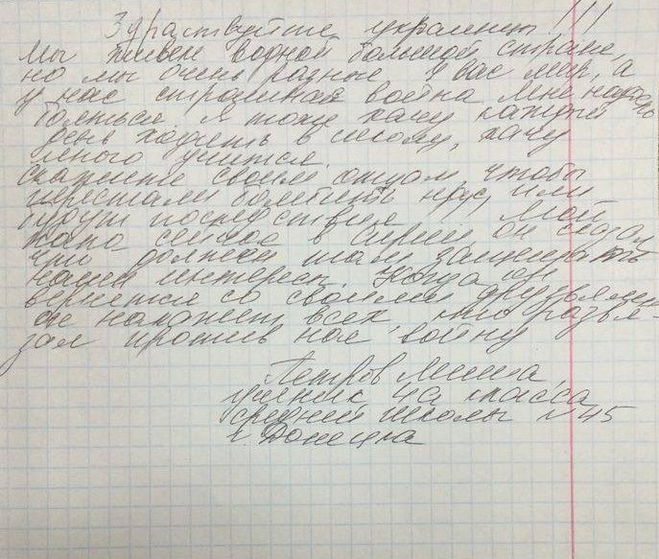 Здраствуйте, украинцы!!!
Мы живем водной большой стране,
но мы очень разные У вас мир, а
у нас страшная война Мне надоело
бояться я тоже хачу каждый
день ходить в школу, хачу
много учится.
скажите своим отцам, чтобы
перестали бомбить нас, или
будут последствия Мой
папа сейчас в Сирии он сказал
что должен там защищать
наши интересы. Когда он
вернется со своими друзьями
он накажет всех, кто развя-
зал против нас войну
Петров Миша,
ученик 4а класса
средней школы №45
г. Донецка